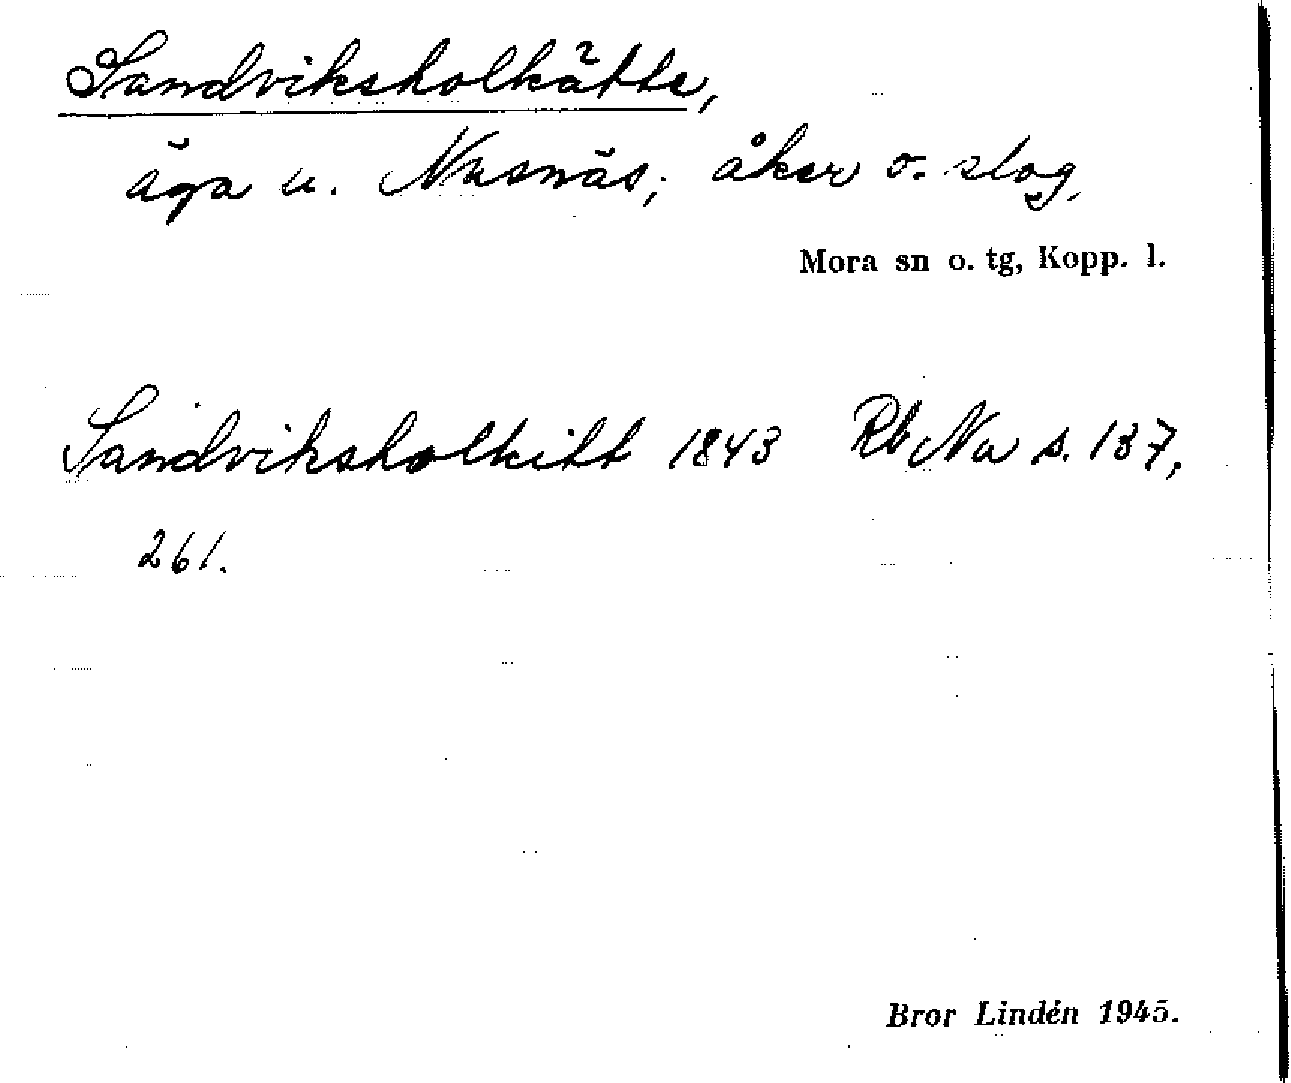 Sandviksholkätte,
äga u. Nusnäs; åker o. slog,
Mora sn o. tg, Kopp. l.
Sandviksholkitt 1843 Rb Nu s. 137,
261.
Bror Lindén 1945.